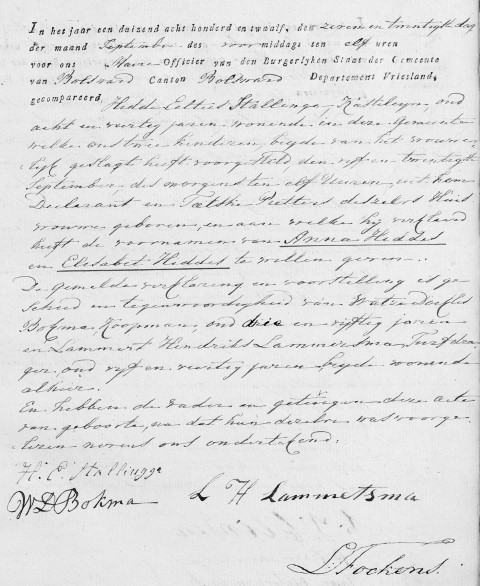 In het jaar een duizend acht honderd en twaalf, den zeven en twintigste dag
der maand September des voor middags ten elf uren
voor ons Maire Officier van den Burgerlyken Staat der Gemeente
van Bolsward Canton Bolsward Departement Vriesland,
gecompareerd Hedde Eelties Stallinga, Kasteleyn, oud
acht en veertig jaren, wonende in deze Gemeente
welke ons twee kinderen, beyde van het vrouwe-
lyk geslagt heeft voorgesteld den vyf en twintigste
September, des morgens ten elf Uuren, uit hem
Declarant en Tætske Pietters deszelvs Huis
vrouwe geboren, en aan welke hy verklaard
heeft de voornamen van Anna Heddes
en Elisabet Heddes te willen geven.
De gemelde verklaring en voorstelling is ge-
schied in tegenwoordigheid van Watze Deelfs
Bokma Koopman, oud drie en vyftig jaren
en Lammert Hendriks Lammertsma Turfdra-
ger, oud vyf en veertig jaren beyde wonende
alhier.
En hebben de vader en getuigen deze acte
van geboorte, na dat hun dezelve was voorge-
lezen nevens ons ondertekend.
H. E. Stallingga
W D Bokma L H Lammetsma
L. Fockens.